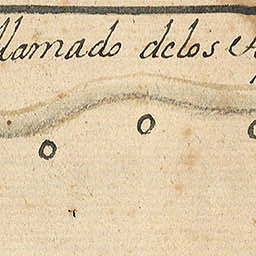 llamado delos